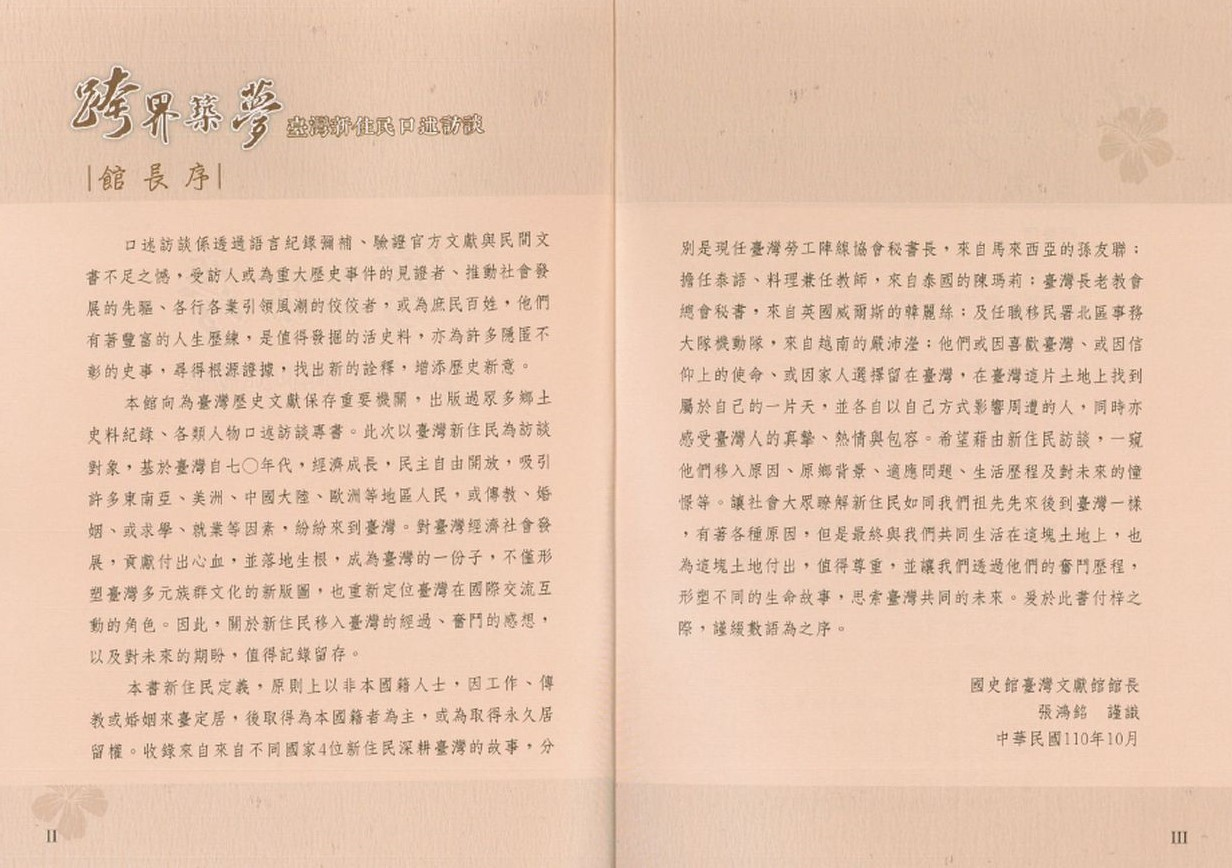 跨界築夢 臺灣新住民口述訪談
館長序
口述訪談係透過語言紀錄彌補、驗證官方文獻與民間文
書不足之憾，受訪人或為重大歷史事件的見證者、推動社會發
展的先驅、各行各業引領風潮的佼佼者，或為庶民百姓，他們
有著豐富的人生歷練，是值得發掘的活史料，亦為許多隱匿不
彰的史事，尋得根源證據，找出新的詮釋，增添歷史新意。
本館向為臺灣歷史文獻保存重要機關，出版過眾多鄉土
史料紀錄、各類人物口述訪談專書。此次以臺灣新住民為訪談
對象，基於臺灣自七〇年代，經濟成長，民主自由開放，吸引
許多東南亞、美洲、中國大陸、歐洲等地區人民，或傳教、婚
姻、或求學、就業等因素，紛紛來到臺灣。對臺灣經濟社會發
展，貢獻付出心血，並落地生根，成為臺灣的一份子，不僅形
塑臺灣多元族群文化的新版圖，也重新定位臺灣在國際交流互
動的角色。因此，關於新住民移入臺灣的經過、奮鬥的感想，
以及對未來的期盼，值得記錄留存。
本書新住民定義，原則上以非本國籍人士，因工作、傳
教或婚姻來臺定居，後取得為本國籍者為主，或為取得永久居
留權。收錄來自來自不同國家4位新住民深耕臺灣的故事，分
II
別是現任臺灣勞工陣線協會秘書長，來自馬來西亞的孫友聯；
擔任泰語、料理兼任教師，來自泰國的陳瑪莉；臺灣長老教會
總會秘書，來自英國威爾斯的韓麗絲；及任職移民署北區事務
大隊機動隊，來自越南的嚴沛瀅；他們或因喜歡臺灣、或因信
仰上的使命、或因家人選擇留在臺灣，在臺灣這片土地上找到
屬於自己的一片天，並各自以自己方式影響周遭的人，同時亦
感受臺灣人的真摯、熱情與包容。希望藉由新住民訪談，一窺
他們移入原因、原鄉背景、適應問題、生活歷程及對未來的憧
憬等。讓社會大眾瞭解新住民如同我們祖先先來後到臺灣一樣
，有著各種原因，但是最終與我們共同生活在這塊土地上，也
為這塊土地付出，值得尊重，並讓我們透過他們的奮鬥歷程，
形塑不同的生命故事，思索臺灣共同的未來。爰於此書付梓之
際，謹綴數語為之序。
國史館臺灣文獻館館長
張鴻銘 謹識
中華民國110年10月
III